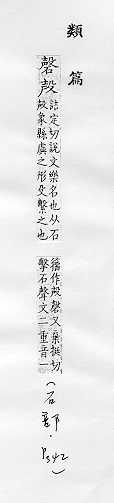 類篇
磬殸
詰定切說文樂名也从石
殸象縣虡之形殳擊之也
籀作殸磬又棄挺切
擊石聲文二重音一
(石部・